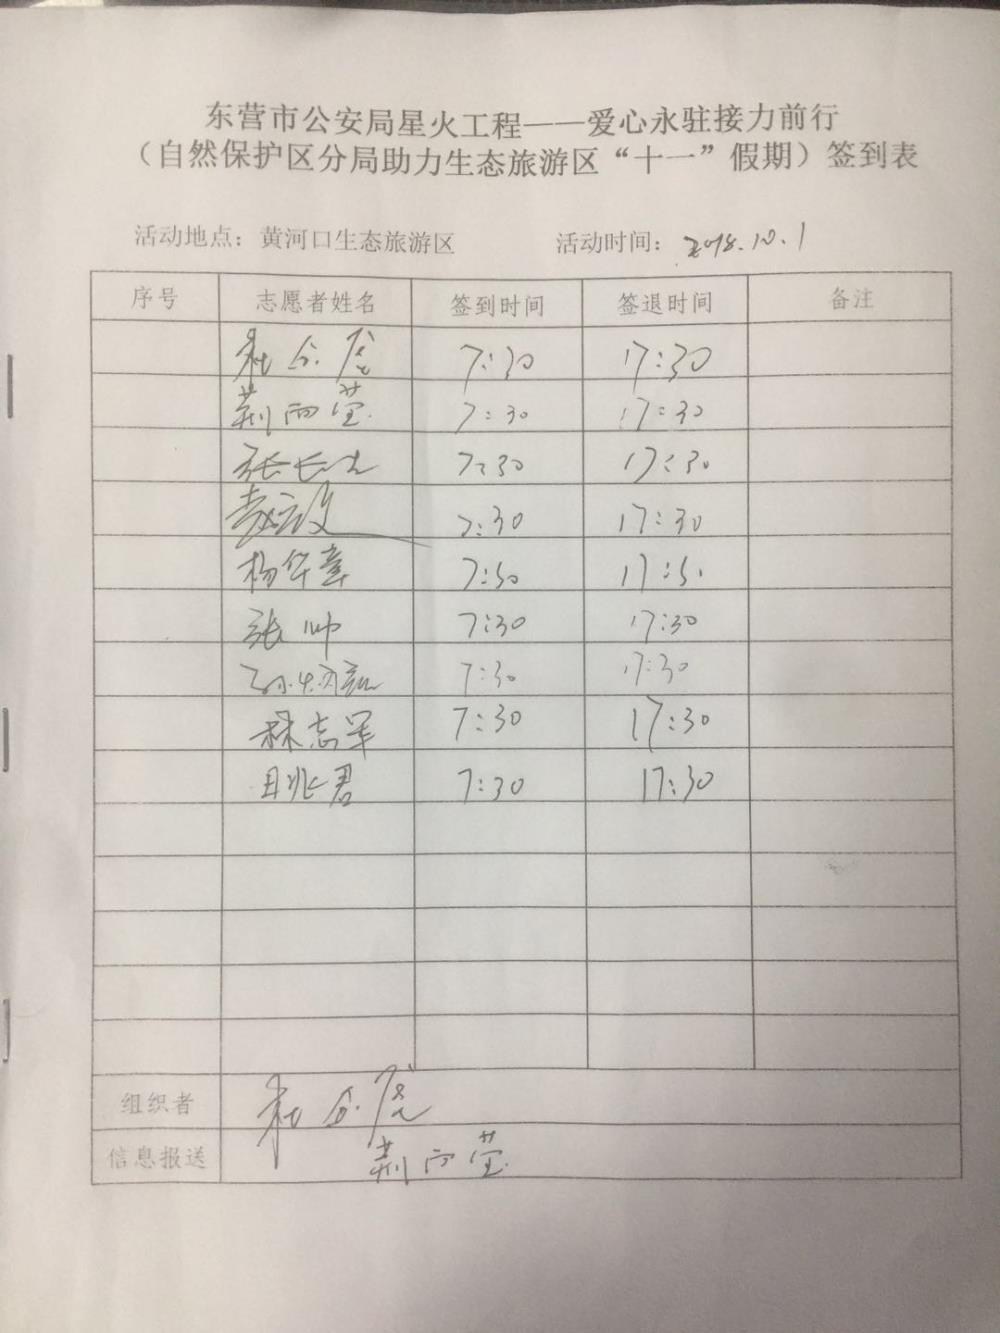 东营市公安局星火工程——爱心永驻接力前行
（自然保护区分局助力生态旅游区“十一”假期）签到表
活动地点：黄河口生态旅游区 活动时间：2018.10.1
序号 志愿者姓名 签到时间 签退时间 备注
7:30 17:30
荆雨莹 7:30 17:30
7:30 17:30
7:30 17:30
杨华章 7:30 17:30
张帅 7:30 17:30
7:30 17:30
林志军 7:30 17:30
7:30 17:30
组织者
信息报送 荆雨莹